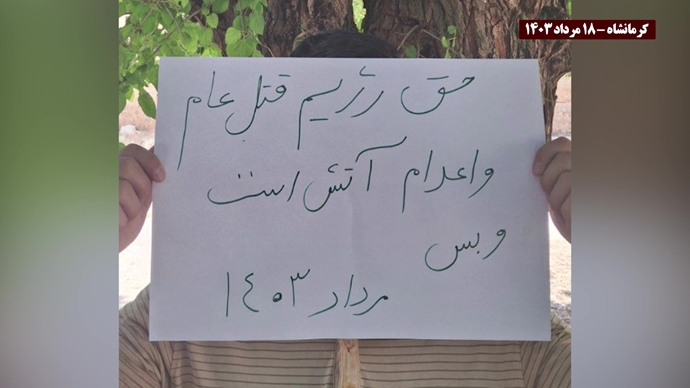 کرمانشاه - ۱۸ مرداد ۱۴۰۳
حق رژیم قتل عام
و اعدام آتش است
و بس
مرداد ۱۴۰۳